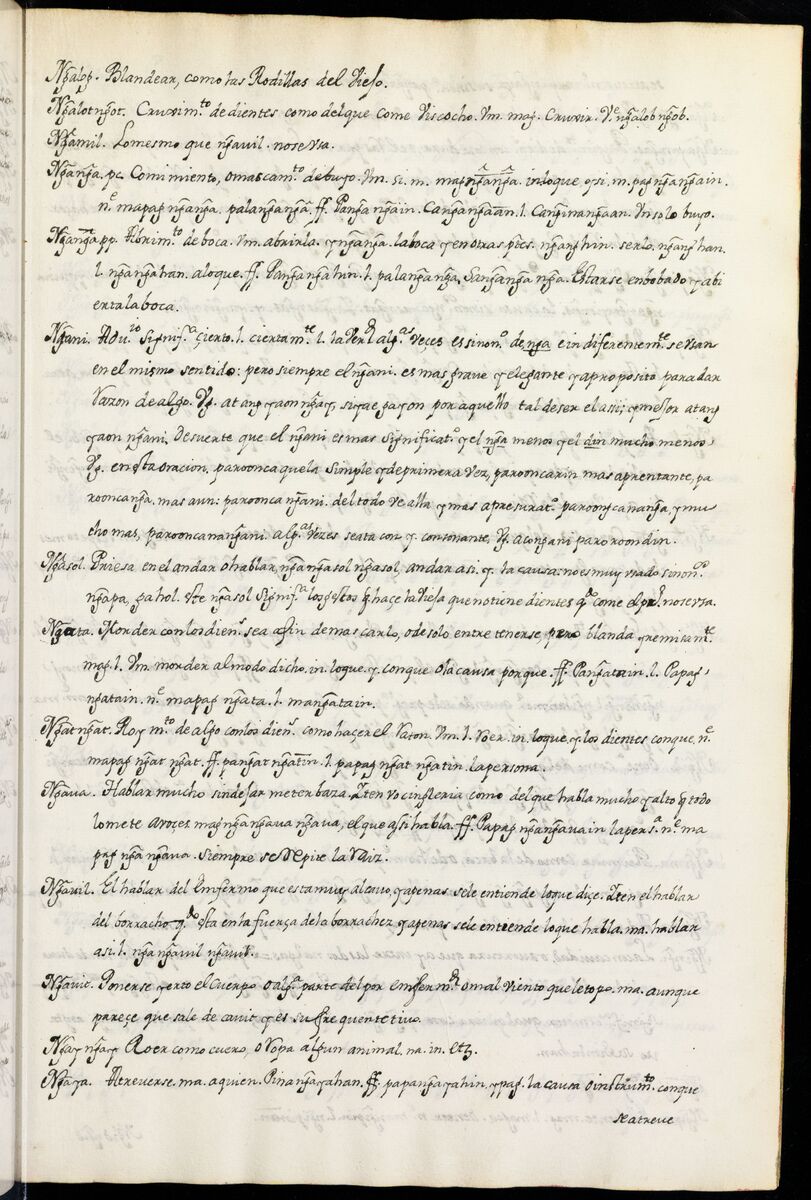 Ng̃alog. Blandear, como las Rodillas del Viejo.
Ng̃alotng̃ot. Cruxim.to de dientes como del que come Viscocho. Vm. mag. Cruxir. V.e ng̃alob ng̃ob.
Ng̃amil. Lo mesmo que ng̃auil. no se vsa.
Ng̃ang̃a. pc. Comimiento, o mascam.to de buyo. Vm. si. m. magng̃ang̃a. in. lo que, y si. m. pagng̃ang̃ain.
n.e mapagng̃ang̃a, palang̃ang̃a. ff. Pang̃ang̃ain. Cang̃ang̃aan. l. Cang̃inang̃aan. Vn solo buyo.
Ng̃ang̃a pp. Abrim.to de boca. Vm. abrirla. y ng̃ang̃a. la boca y en otras p.tes ng̃ang̃hin. serlo. ng̃ang̃han.
l. ng̃ang̃ahan. a lo que. ff. Pang̃ang̃ahin. l. palang̃ang̃a, Sang̃ang̃a ng̃a. Estarse enbobado y abi
erta la boca.
Ng̃ani. Adu.io Signif.ca çierto. l. ciertam.te l. la Ver.d alg.as veçes es sinon.o de nga e indiferentem.te se vsan
en el mismo sentido: pero siempre el ng̃ani. es mas grave y elegante y a proposito para dar
Razon de algo. Vg. at ang yaon ng̃a y, siyae gayon por aquello tal deser el asi; y mejor at ang
yaon ng̃ani. De suerte que el ng̃ani es mas significat.o y el nga menos y el din mucho menos
Vg. en esta oracion. parooncaque la simple y de primera vez, parooncarin mas apretante, pa
rooncang̃a. mas aun: parooncang̃ani. del todo re alta y mas apresurat.o paroongcanang̃a, y mu
cho mas, parooncanang̃ani. alg.as Vezes se ata con y consonante, Vg. acongani paroroondin.
Ng̃asol. Priesa en el andar o hablar, ng̃ang̃asol ng̃asol, andar asi. y la causa: no es muy vsado sinon.o
ng̃apa, gahol. Este ng̃asol Signif.ca los gestos q haçe la Vieja que no tiene dientes q.do come el pr.o no se vsa.
Ng̃ata. Morder con los dien.s sea a fin de mascarlo, o de solo entretenerse pero blanda y remisam.te
mag. l. Vm. morder al modo dicho. in. lo que. y con que o la causa porque. ff. Pang̃atain. l. Papag
ng̃atain. n.e mapagng̃ata. l. mang̃atain.
Ng̃atng̃at. Roym.to de algo con los dien.s como haçer el Raton. Vm. l. Roer. in. lo que, y los dientes con que. n.e
mapagng̃atng̃at. ff. pang̃atng̃atin. l. papagng̃atng̃atin la persona.
Ng̃ava. Hablar mucho sin dejar meter baza. Iten vocingleria como del que habla mucho y alto q todo
lo mete a voçes magng̃ang̃ava ng̃ava, el que asi habla. ff. Papagng̃ang̃ava in la pers.a n.e ma
pagng̃ang̃ava. Siempre se Repite la Raiz.
Ng̃avil. El hablar del Emfermo que esta muy al cavo, y apenas se le entiende lo que diçe. Iten el hablar
del borracho q.do Esta en la fuerça de la borrachez y apenas se le entiende lo que habla. ma. hablar
asi. l. ng̃ang̃avil ng̃avil.
Ng̃avit. Ponerse yerto el Cuerpo o alg.a parte del por emferm.d o mal viento que le topo. ma. aunque
pareçe que sale de cavit, y es su frequentetivo.
Ng̃ayng̃ay Roer como cuero, o Ropa algun animal. na. in. Etz.
Ng̃aya. Atreverse. ma. a quien. Pinang̃ayahan. ff. papang̃ayahin, y pag. la causa o instrum.to con que
se atreve